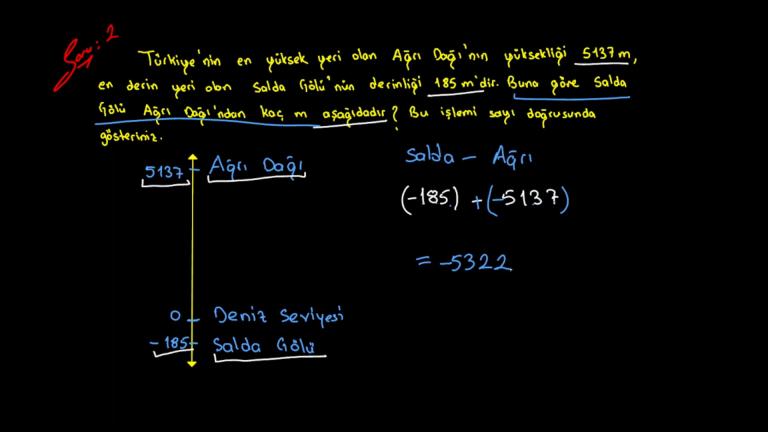 Soru: 2
Türkiye'nin en yüksek yeri olan Ağrı Dağı'nın yüksekliği 5137 m,
en derin yeri olan Salda Gölü'nün derinliği 185 m'dir. Buna göre Salda
Gölü Ağrı Dağı'ndan kaç m aşağıdadır? Bu işlemi sayı doğrusunda
gösteriniz.
5137 Ağrı Dağı
0 Deniz Seviyesi
-185 Salda Gölü
Salda - Ağrı
(-185) + (-5137)
= -5322